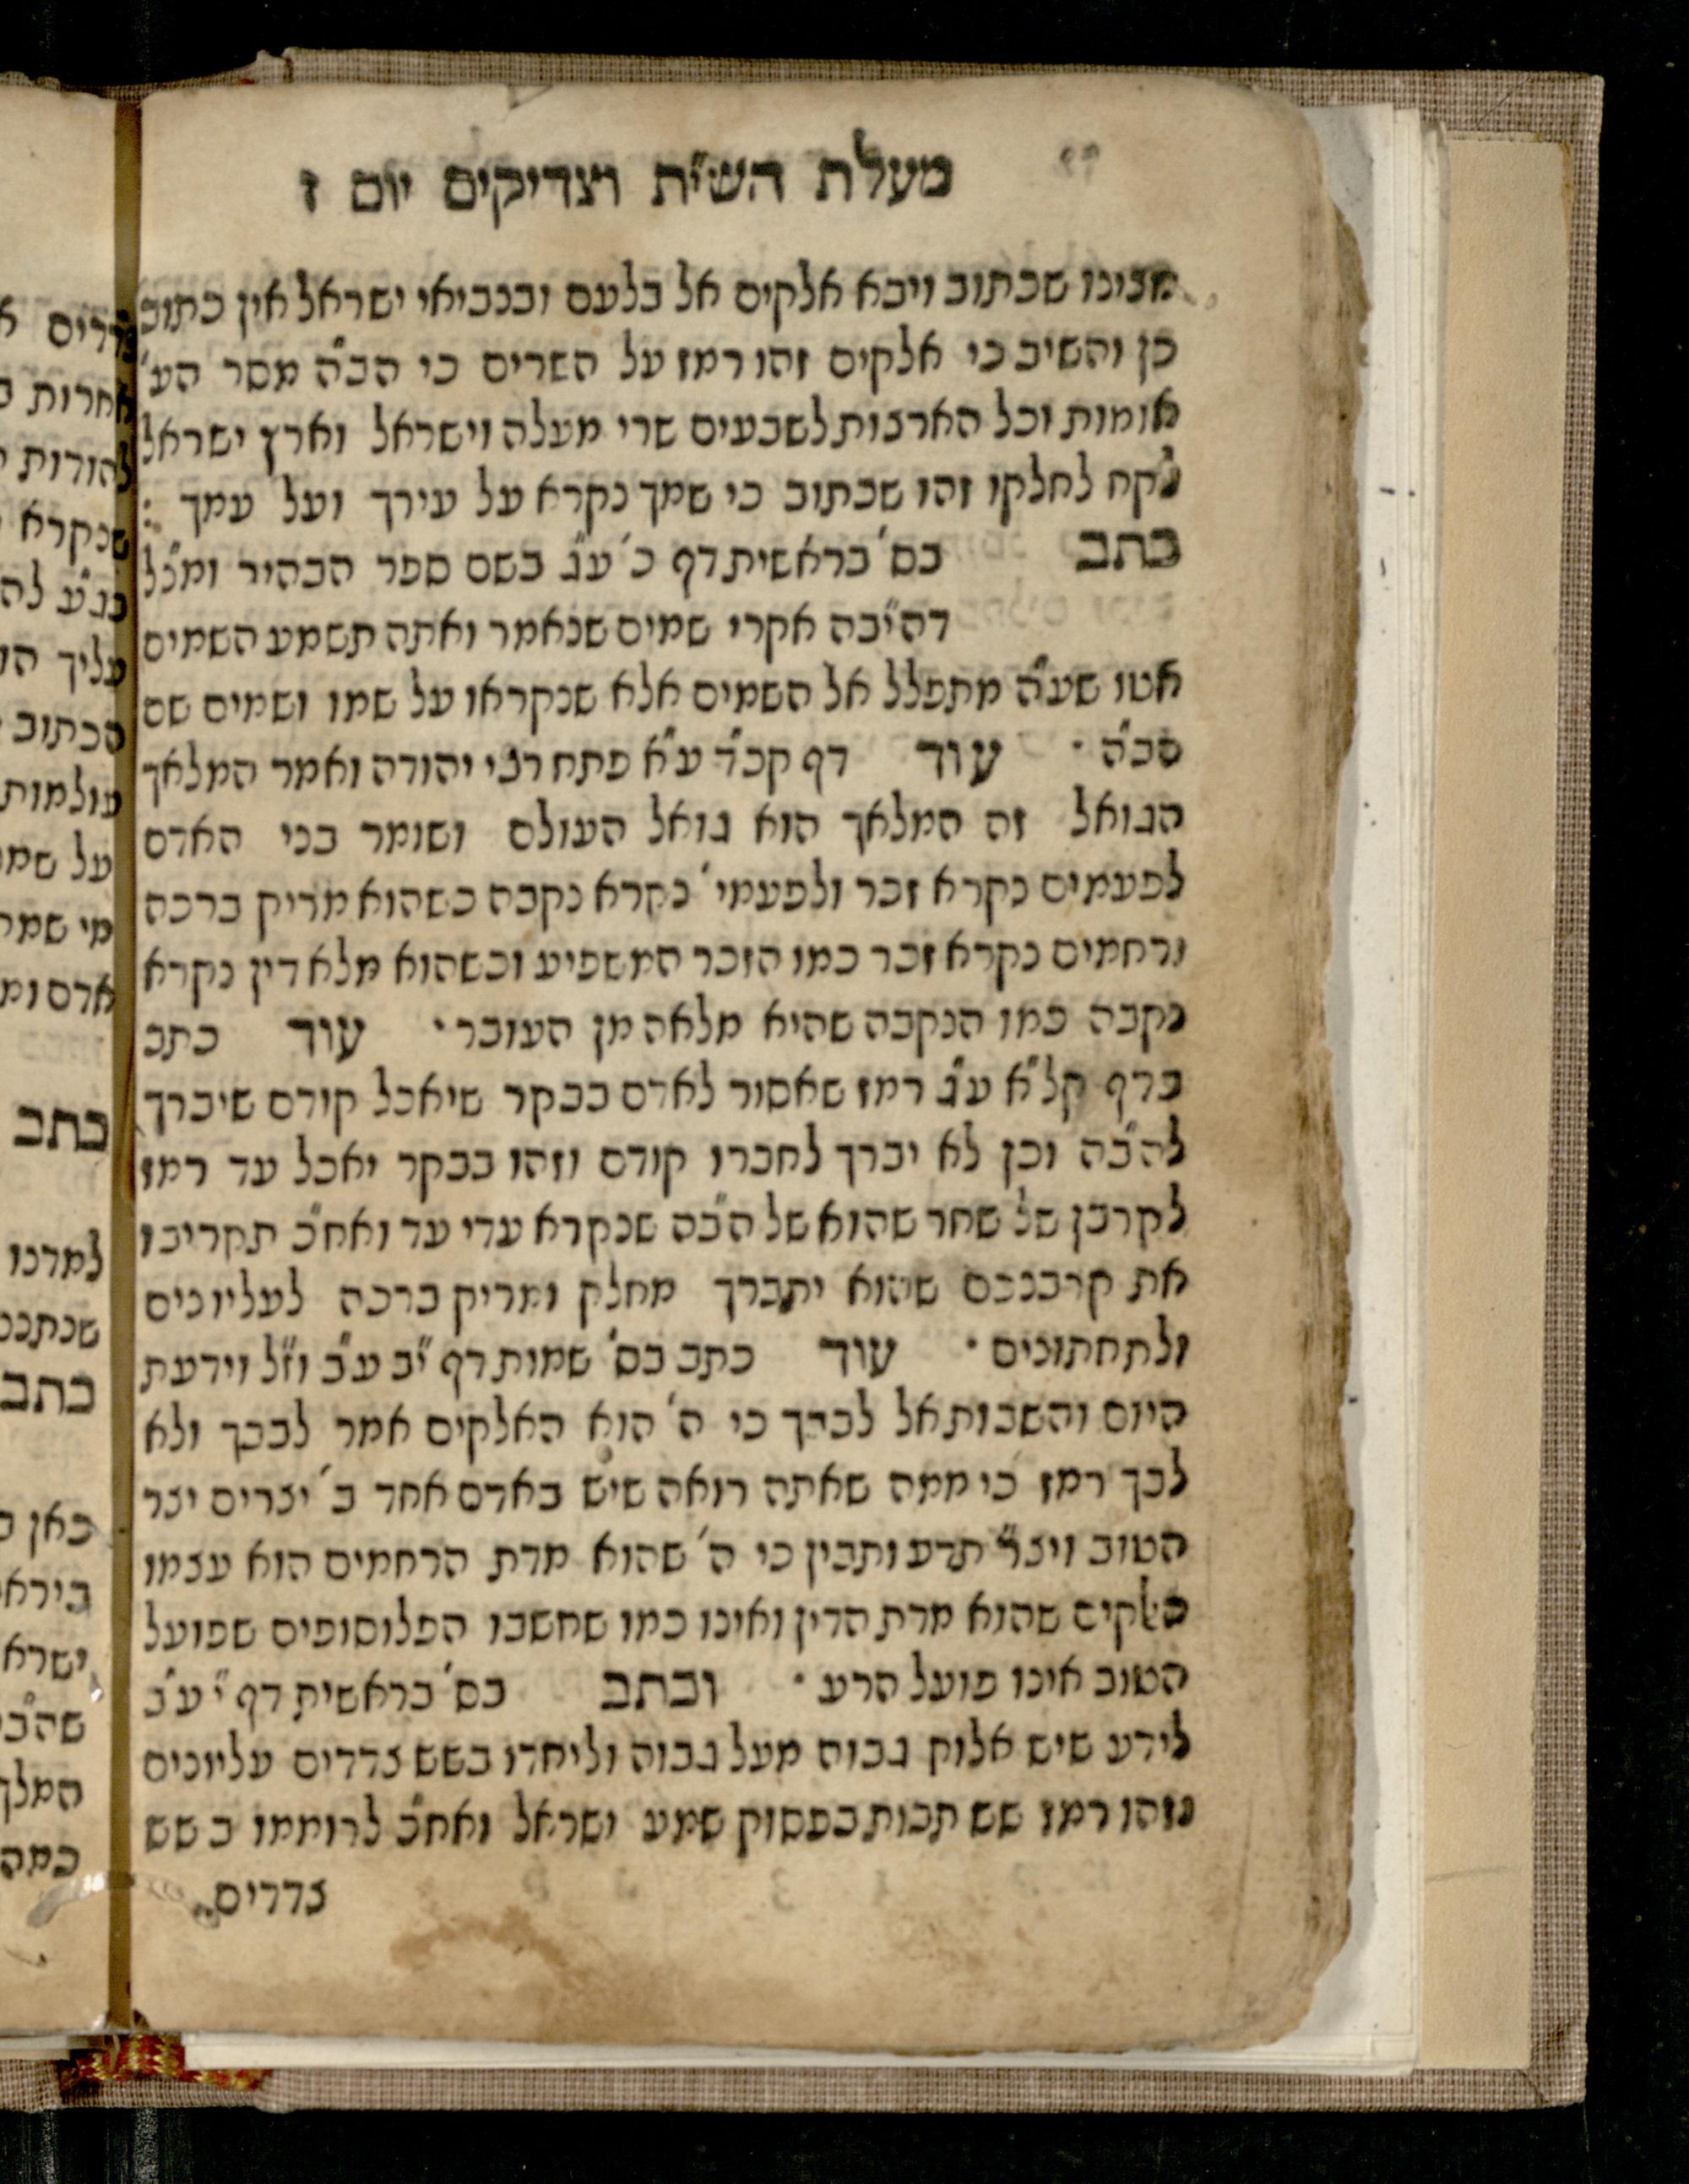 מעלת הש"ית וצדיקים יום ז
מצינו שכתוב ויבא אלקים אל בלעם ובנביאי ישראל אין כתוב
כן והשיב כי אלקים זהו רמז על השרים כי הב"ה מסר הע'
אומות וכל הארצות לשבעים שרי מעלה וישראל וארץ ישראל
לקח לחלקו זהו שכתוב כי שמך נקרא על עירך ועל עמך :
כתב בס' בראשית דף כ' ע"ג בשם ספר הבהיר ומנ"ל
דה"יבה אקרי שמים שנאמר ואתה תשמע השמים
אטו שע"ה מתפלל אל השמים אלא שנקראו על שמו ושמים שם
הב"ה · עוד דף קכ"ד ע"א פתח רבי יהודה ואמר המלאך
הגואל זה המלאך הוא גואל העולם ושומר בני האדם
לפעמים נקרא זכר ולפעמי' נקרא נקבה כשהוא מריק ברכה
ורחמים נקרא זכר כמו הזכר המשפיע וכשהוא מלא דין נקרא
נקבה כמו הנקבה שהיא מלאה מן העובר · עוד כתב
בדף קל"א ע"ג רמז שאסור לאדם בבקר שיאכל קודם שיברך
לה"בה וכן לא יברך לחברו קודם וזהו בבקר יאכל עד רמז
לקרבן של שחר שהוא של ה"בה שנקרא עדי עד ואח"כ תקריבו
את קרבנכם שהוא יתברך מחלק ומריק ברכה לעליונים
ולתחתונים · עוד כתב בס' שמות דף י"ב ע"ב וז"ל וידעת
היום והשבות אל לבבך כי ה' הוא האלקים אמר לבבך ולא
לבך רמז כי ממה שאתה רואה שיש באדם אחד ב' יצרים יצר
הטוב ויצ"ר תדע ותבין כי ה' שהוא מדת הרחמים הוא עצמו
אלקים שהוא מדת הדין ואינו כמו שחשבו הפלוסופים שפועל
הטוב אינו פועל הרע · וכתב בס' בראשית דף י" ע"ב
לידע שיש אלוק גבוה מעל גבוה וליחדו בשש צדדים עליונים
וזהו רמז שש תבות בפסוק שמע ישראל ואח"כ לרוממו בשש
צדדים